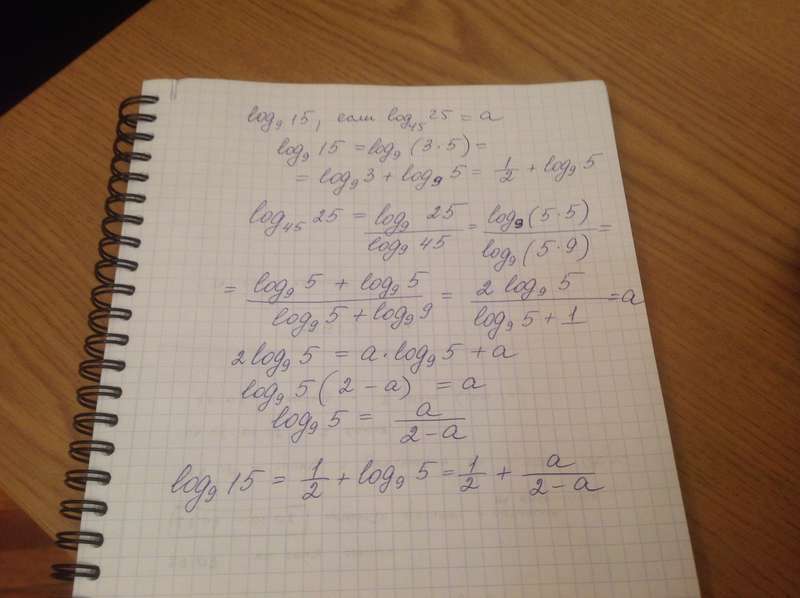 log₉ 15, если log₄₅ 25 = a
log₉ 15 = log₉ (3·5) =
= log₉ 3 + log₉ 5 = 1/2 + log₉ 5
log₄₅ 25 = log₉ 25 / log₉ 45 = log₉ (5·5) / log₉ (5·9) =
= (log₉ 5 + log₉ 5) / (log₉ 5 + log₉ 9) = 2 log₉ 5 / (log₉ 5 + 1) = a
2 log₉ 5 = a · log₉ 5 + a
log₉ 5 (2 - a) = a
log₉ 5 = a / (2 - a)
log₉ 15 = 1/2 + log₉ 5 = 1/2 + a / (2 - a)